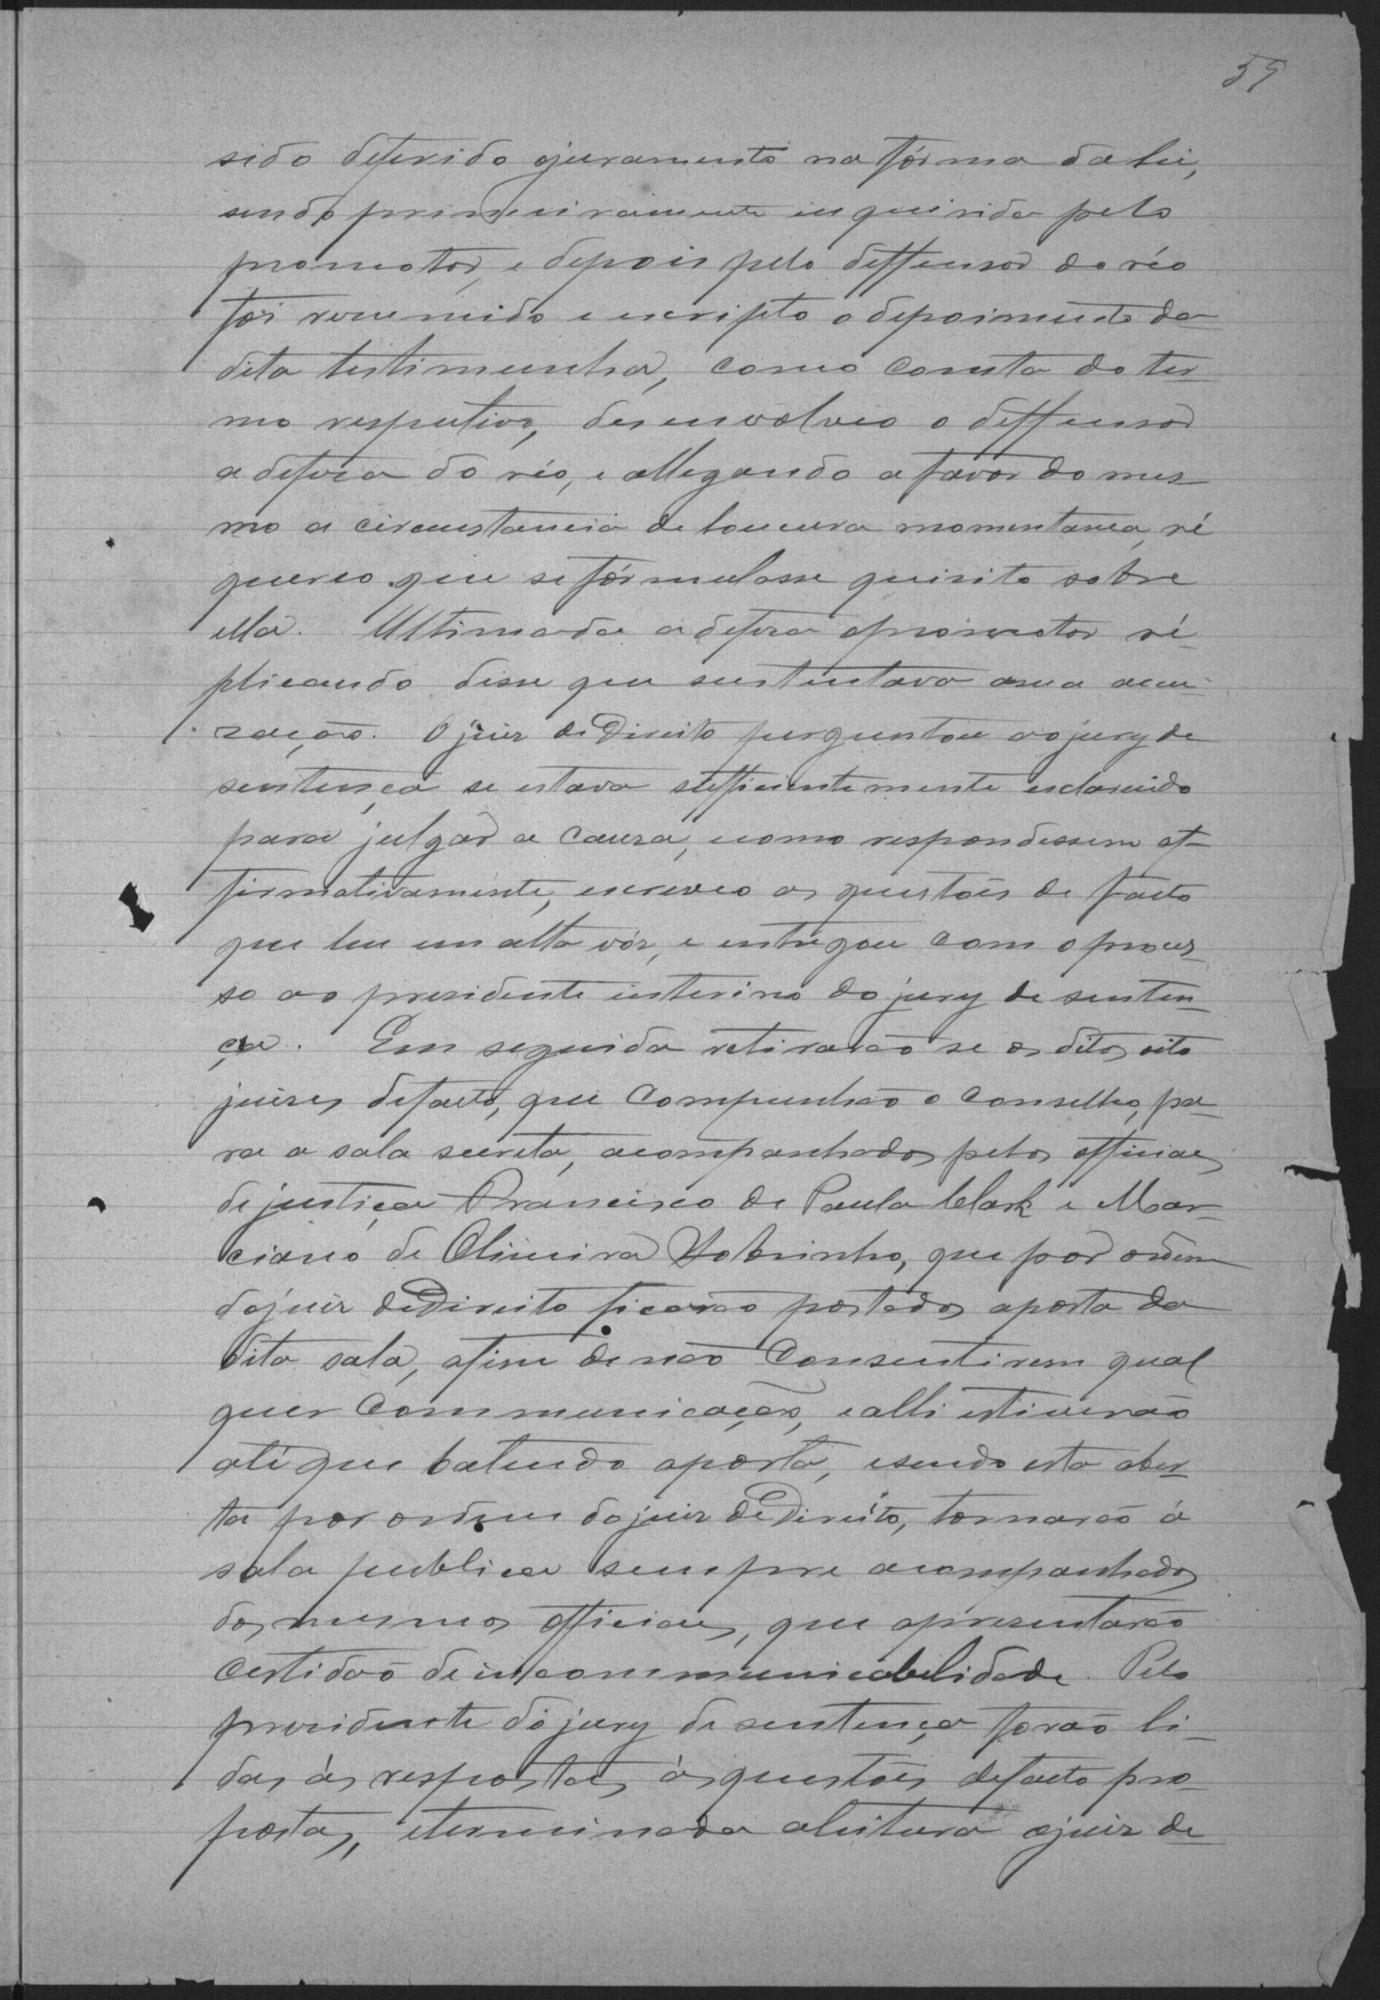 59
sido deferido o juramento na fórma da lei,
sendo primeiramente inquirida pelo
promotor, e depois pelo deffensor do réo
foi resumido e escripto o depoimento da
dita testimunha, como consta do ter
mo respectivo, desenvolveo o deffensor
a defesa do réo, e allegando a favor do mes-
mo a circunstancia de loucura momentanea, re
quereo que se fórmulasse quisito sobre
ella. Ultimada a defesa o promotor re-
plicando disse que sustentava a sua accu-
zação. O juiz de Direito perguntou ao jury de
sentença se estava sufficientemente esclarecido
para julgar a causa, e como respondessem af-
firmativamente, escreveo as questões de facto
que leu em alta vóz, e entregou com o proces-
so ao presidente interino do jury de senten-
ça. Em seguida retirarão se os ditos oito
juizes de facto, que compunhão o conselho, pa-
ra a sala secreta, acompanhados pelos officiaes
de justiça Francisco de Paula Clark e Mar-
ciano de Oliveira Sobrinho, que por ordem
do juiz de Direito ficarão postados a porta da
dita sala, afim de não consentirem qual
quer communicação, e alli estiverão
até que batendo a porta, e sendo esta aber-
ta por ordem do juiz de Direito, tornarão á
sala publica sempre acompanhados
dos mesmos officiaes, que apresentarão
certidão de incommunicabilidade. Pelo
presidente do jury de sentença forão li-
das ás respostas ás questões de facto pro-
postas, e terminada a leitura o juiz de